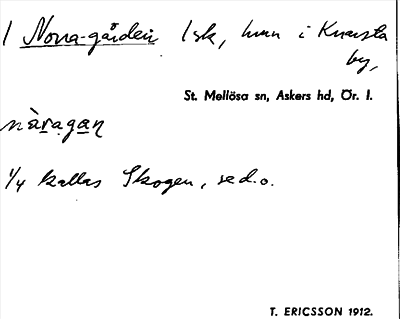 1 Norra-gården 1sk, hmn i Knarsta
by,
St. Mellösa sn, Askers hd, Ör. l.
nàragan
1/4 kallas Skogen, se d.o.
T. ERICSSON 1912.